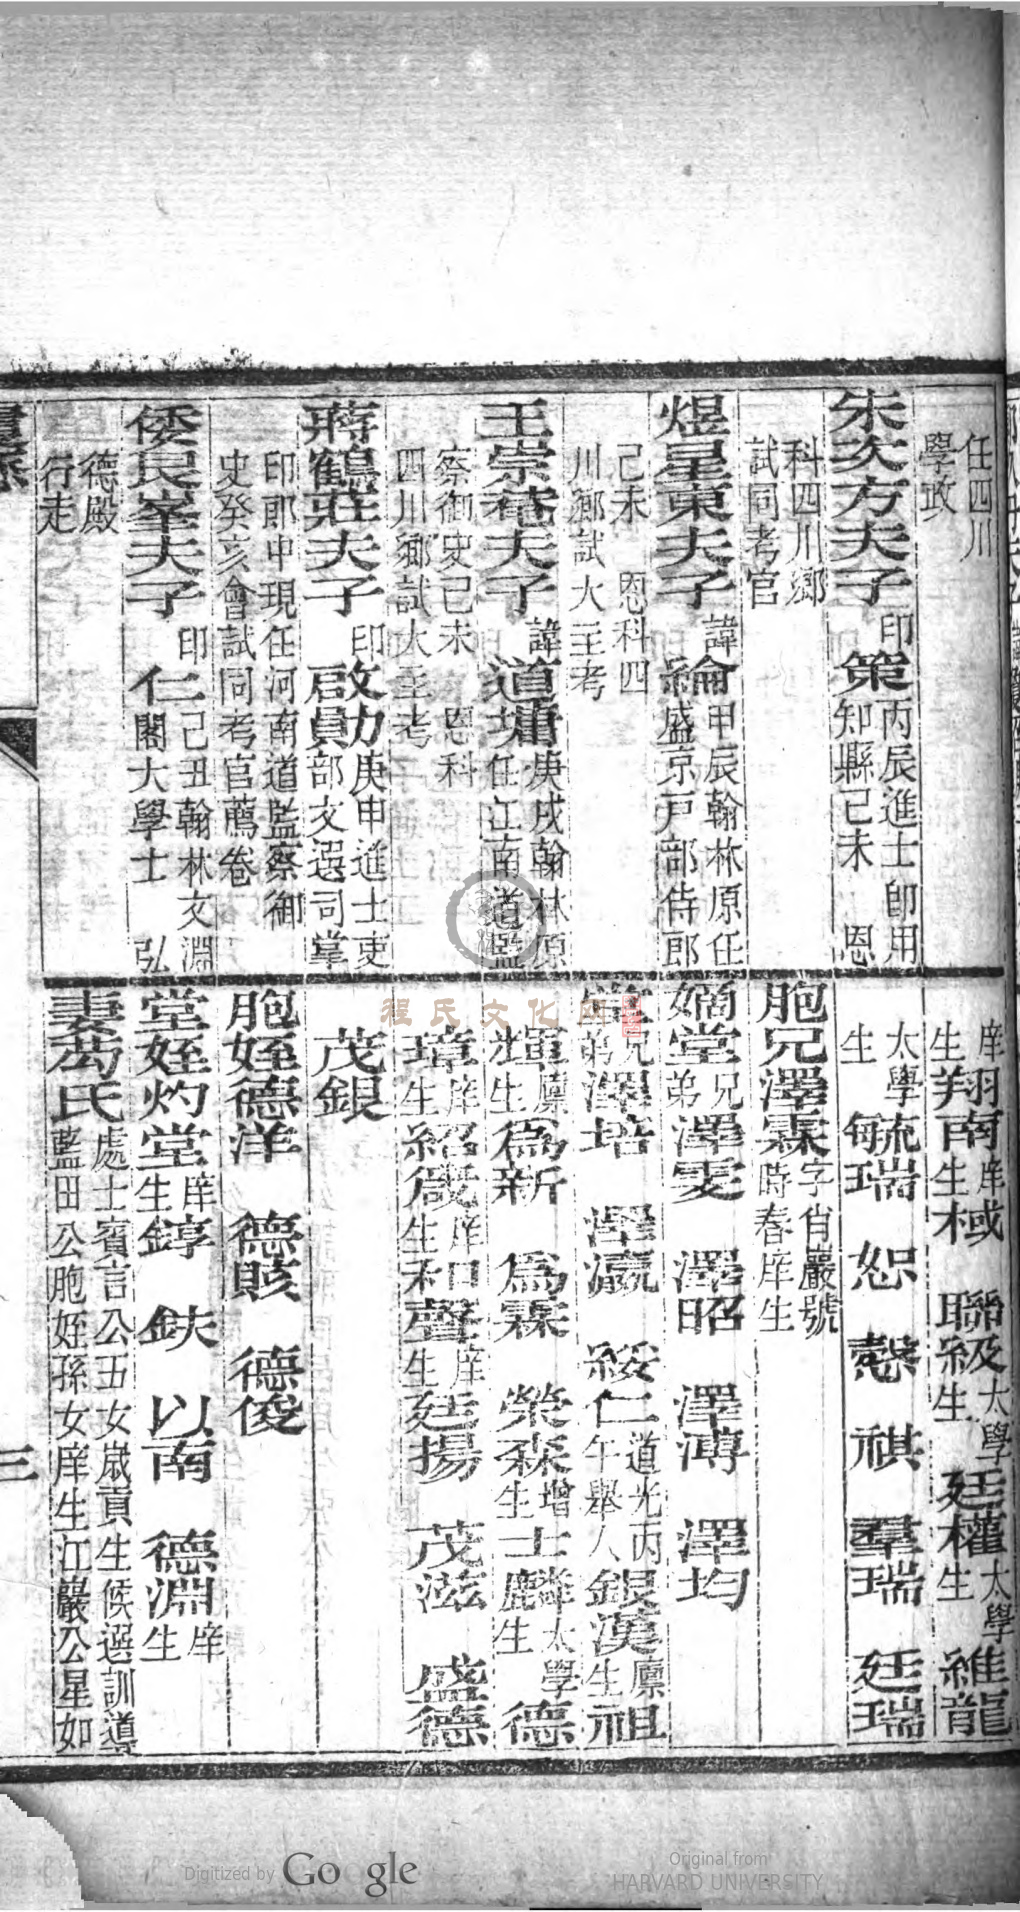 任四川
學政
朱次方夫子 印策 丙辰進士即用
知縣己未 恩
科四川鄉
試同考官
煜星東夫子 諱綸 甲辰翰林原任
盛京戸部侍郎
己未 恩科四
川鄉試大主考
王崇菴夫子 諱道墉 庚戌翰林原
任江南道監
察御史己未 恩科
四川鄉試大主考
蔣鶴莊夫子 印啟勛 庚申進士吏
部文選司掌
印郎中現任河南道監察御
史癸亥會試同考官薦卷
倭艮峯夫子 印仁 己丑翰林文淵
閣大學士 弘
德殿
行走
羽南庠生 棫庠生 聯級太學生 廷權太學生 維龍
羚南 木
太學生 毓瑞 恕 愨 祺 羣瑞 廷瑞
胞兄澤霖 字肖巖號
時春庠生
嫡堂兄弟澤雯 澤昭 澤溥 澤均
堂兄弟澤培 澤瀛 綏仁 道光丙午舉人 銀漢廩生 祖
輝廩生 爲新 爲霖 榮森增生 士麟太學生 德
璋庠生 紹箴庠生 和聲庠生 廷揚 茂滋 盛德
茂銀
胞姪德洋 德賅 德俊
堂姪灼堂庠生 錞 鈇 以南 德淵庠生
妻蒍氏 處士賓言公五女歲貢生候選訓導
藍田公胞姪孫女庠生江巖公星如
三
程氏文化网
Digitized by Google
Original from
HARVARD UNIVERSITY